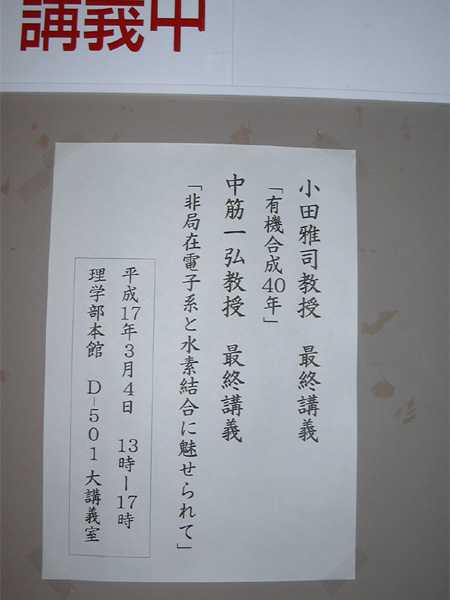 講義中
小田雅司教授 最終講義
「有機合成40年」
中筋一弘教授 最終講義
「非局在電子系と水素結合に魅せられて」
平成17年3月4日 13時ー17時
理学部本館 D-501大講義室